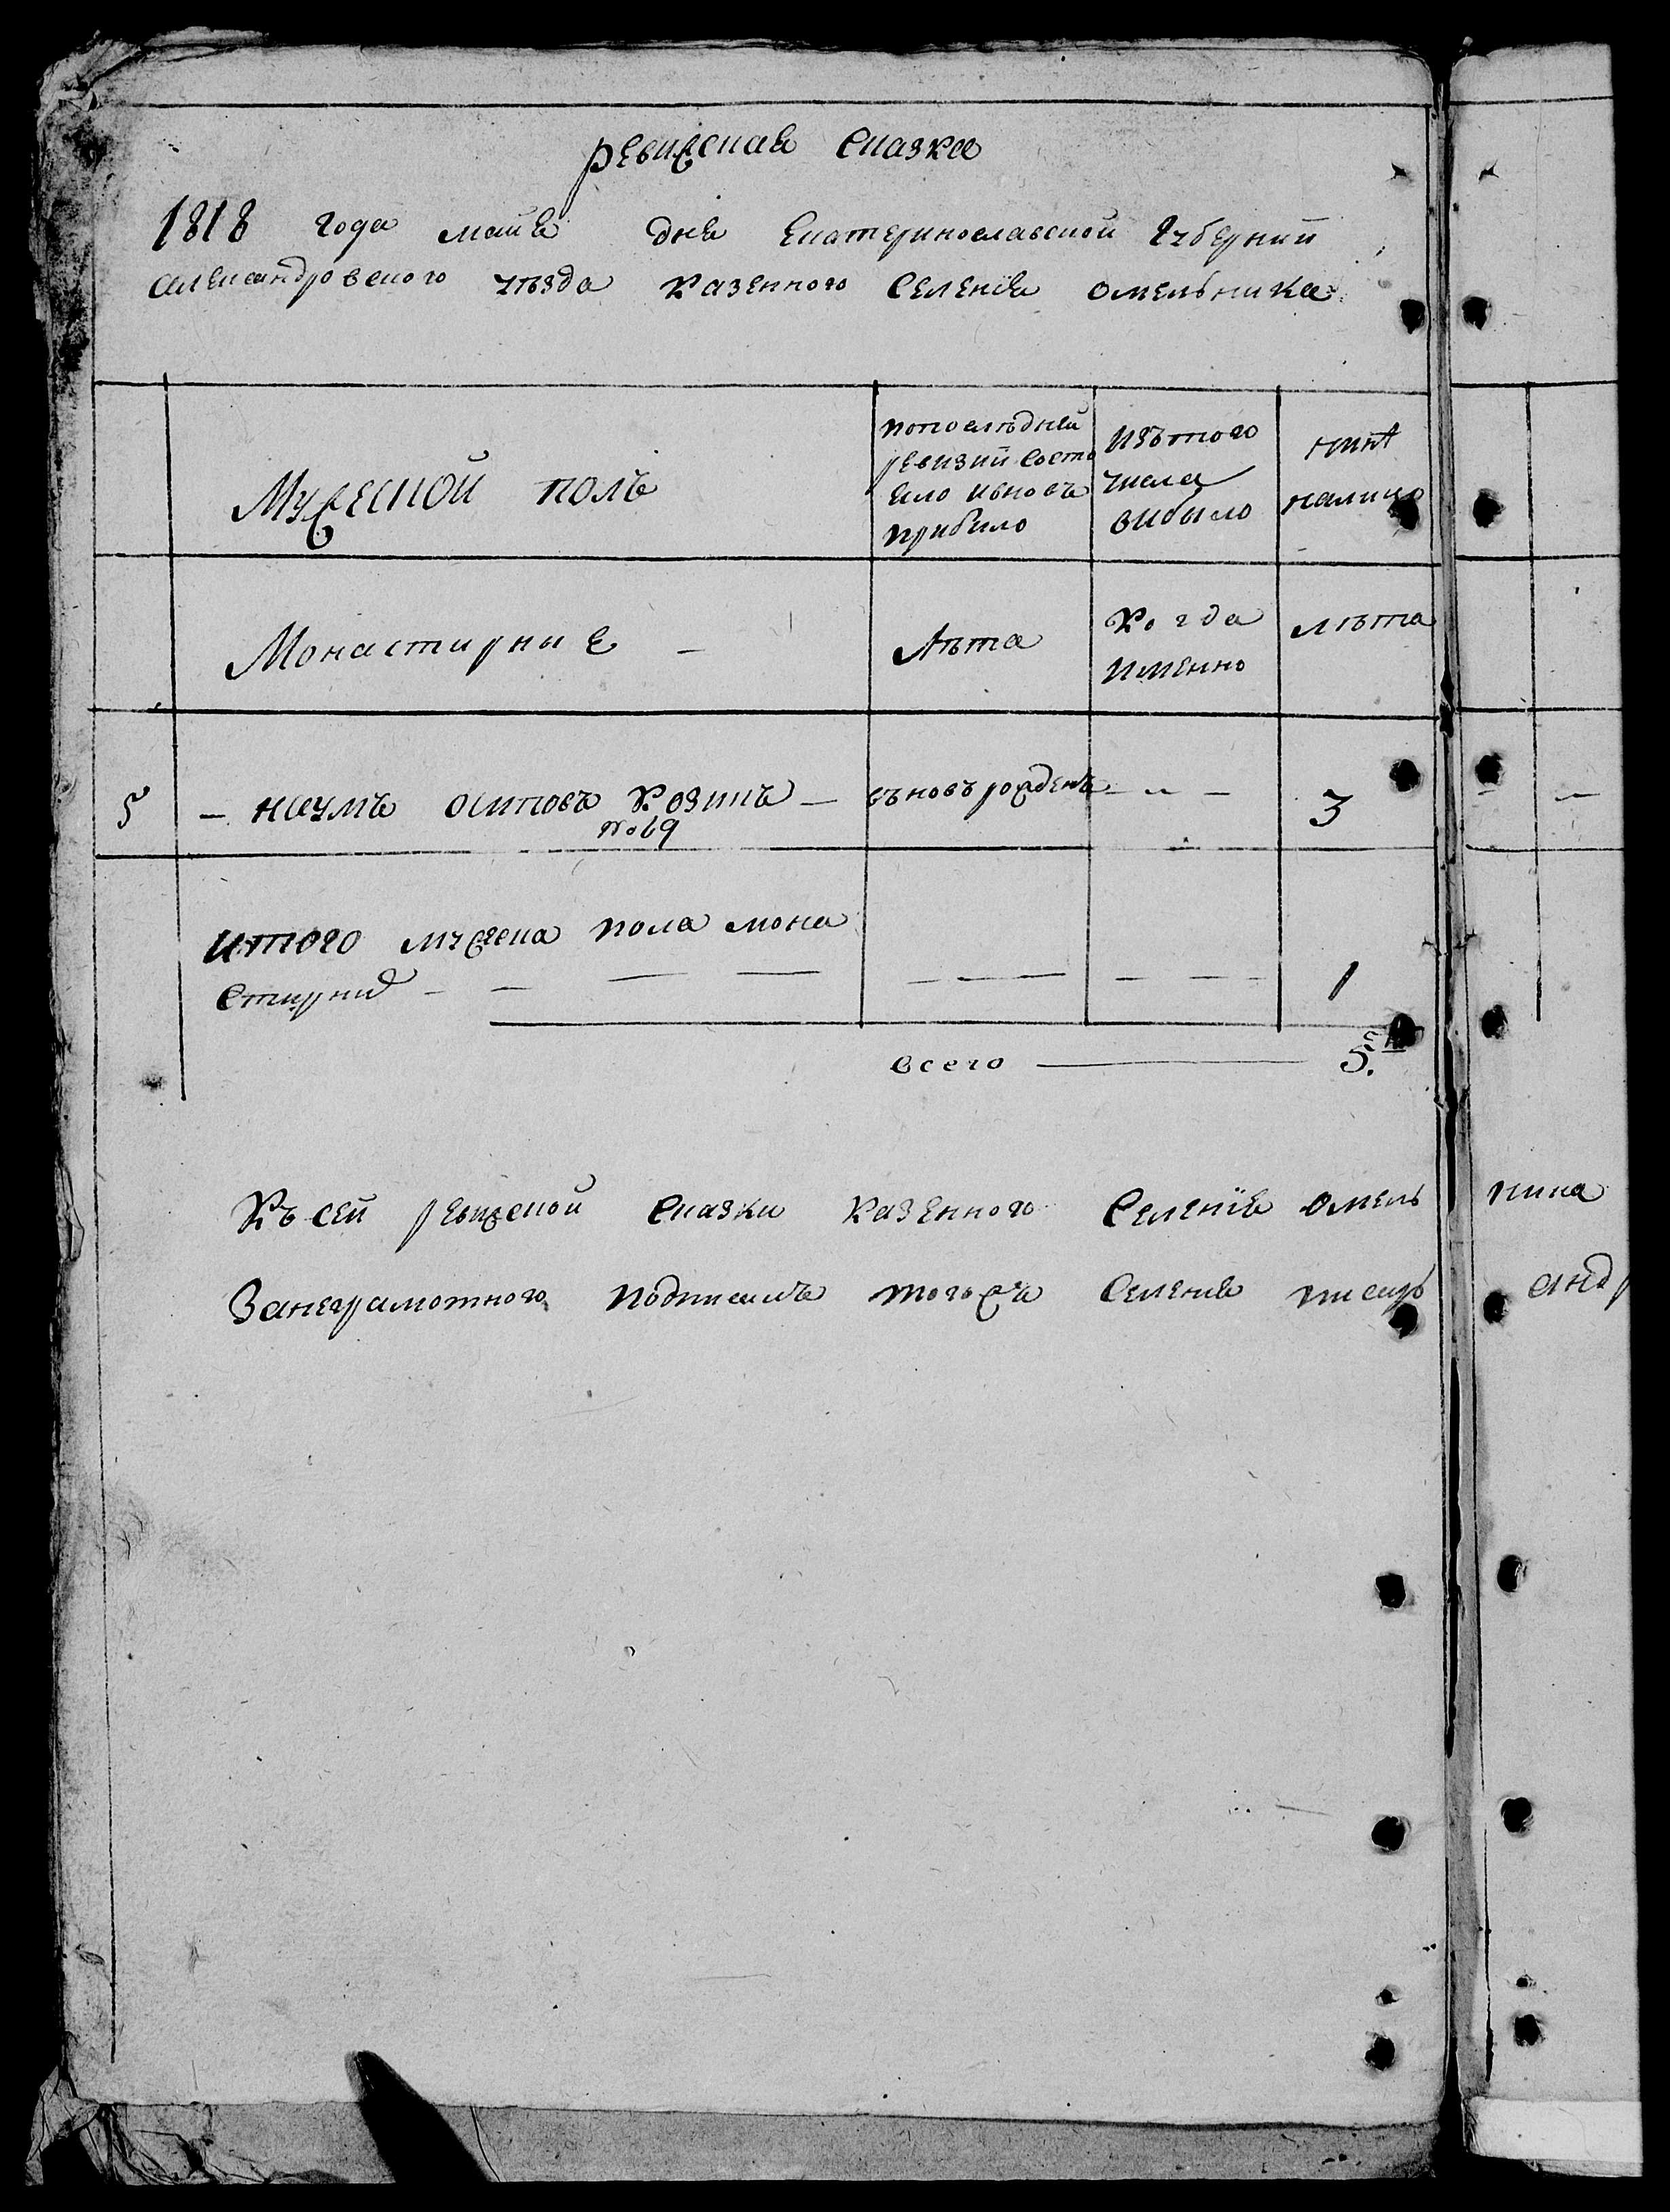 ревижская сказка
1818 года майя дня Екатеринославской Губернии
александровского уѣзда казенного селенія омельника
Мужеской полъ
попослѣдней
ревизии состо
яло ивновъ
прибило
изътого
числа
вибыло
нинѣ
налицо
Монастирние —
лѣта
Когда
именно
лѣта
5 — наумъ осиповъ Козинъ — съновъ рожденъ — „ — 3
№ 69
итого мужеска пола мона
стирни — — — — — — — — — 1
всего — 5.
Къ сей ревижской сказки казенного селенія омель ника
Занеграмотного подписалъ тогожъ селенія писарь андр